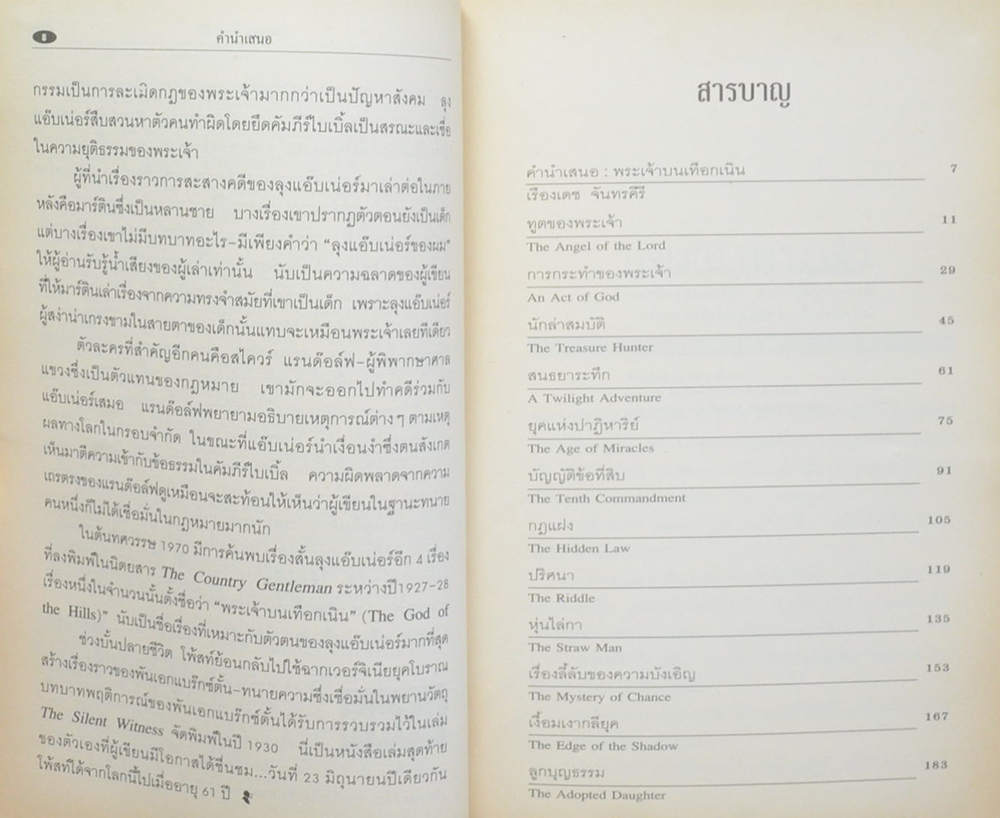 คำนำเสนอ
กรรมเป็นการละเมิดกฎของพระเจ้ามากกว่าเป็นปัญหาสังคม ลุง
แอ๊บเน่อร์สืบสวนหาตัวคนทำผิดโดยยึดคัมภีร์ไบเบิ้ลเป็นสรณะและเชื่อ
ในความยุติธรรมของพระเจ้า
ผู้ที่นำเรื่องราวการสะสางคดีของลุงแอ๊บเน่อร์มาเล่าต่อในภาย
หลังคือมาร์ตินซึ่งเป็นหลานชาย บางเรื่องเขาปรากฏตัวตอนยังเป็นเด็ก
แต่บางเรื่องเขาไม่มีบทบาทอะไร-มีเพียงคำว่า "ลุงแอ๊บเน่อร์ของผม"
ให้ผู้อ่านรับรู้น้ำเสียงของผู้เล่าเท่านั้น นับเป็นความฉลาดของผู้เขียน
ที่ให้มาร์ตินเล่าเรื่องจากความทรงจำสมัยที่เขาเป็นเด็ก เพราะลุงแอ๊บเน่อร์
ผู้สง่าน่าเกรงขามในสายตาของเด็กนั้นแทบจะเหมือนพระเจ้าเลยทีเดียว
ตัวละครที่สำคัญอีกคนคือสไควร์ แรนด๊อล์ฟ-ผู้พิพากษาศาล
แขวงซึ่งเป็นตัวแทนของกฎหมาย เขามักจะออกไปทำคดีร่วมกับ
แอ๊บเน่อร์เสมอ แรนด๊อล์ฟพยายามอธิบายเหตุการณ์ต่างๆ ตามเหตุ
ผลทางโลกในกรอบจำกัด ในขณะที่แอ๊บเน่อร์นำเงื่อนงำซึ่งตนสังเกต
เห็นมาตีความเข้ากับข้อธรรมในคัมภีร์ไบเบิ้ล ความผิดพลาดจากความ
เถรตรงของแรนด๊อล์ฟดูเหมือนจะสะท้อนให้เห็นว่าผู้เขียนในฐานะทนาย
คนหนึ่งก็ไม่ได้เชื่อมั่นในกฎหมายมากนัก
ในต้นทศวรรษ 1970 มีการค้นพบเรื่องสั้นลุงแอ๊บเน่อร์อีก 4 เรื่อง
ที่ลงพิมพ์ในนิตยสาร The Country Gentleman ระหว่างปี1927-28
เรื่องหนึ่งในจำนวนนั้นตั้งชื่อว่า "พระเจ้าบนเทือกเนิน" (The God of
the Hills)" นับเป็นชื่อเรื่องที่เหมาะกับตัวตนของลุงแอ๊บเน่อร์มากที่สุด
ช่วงบั้นปลายชีวิต โพ้สท์ย้อนกลับไปใช้ฉากเวอร์จิเนียยุคโบราณ
สร้างเรื่องราวของพันเอกแบร๊กซ์ตั้น-ทนายความซึ่งเชื่อมั่นในพยานวัตถุ
บทบาทพฤติการณ์ของพันเอกแบร๊กซ์ตั้นได้รับการรวบรวมไว้ในเล่ม
The Silent Witness จัดพิมพ์ในปี 1930 นี่เป็นหนังสือเล่มสุดท้าย
ของตัวเองที่ผู้เขียนมีโอกาสได้ชื่นชม...วันที่ 23 มิถุนายนปีเดียวกัน
โพ้สท์ได้จากโลกนี้ไปเมื่ออายุ 61 ปี
สารบาญ
คำนำเสนอ : พระเจ้าบนเทือกเนิน 7
เรืองเดช จันทรคีรี
ทูตของพระเจ้า 11
The Angel of the Lord
การกระทำของพระเจ้า 29
An Act of God
นักล่าสมบัติ 45
The Treasure Hunter
สนธยาระทึก 61
A Twilight Adventure
ยุคแห่งปาฏิหาริย์ 75
The Age of Miracles
บัญญัติข้อที่สิบ 91
The Tenth Commandment
กฎแฝง 105
The Hidden Law
ปริศนา 119
The Riddle
หุ่นไล่กา 135
The Straw Man
เรื่องลี้ลับของความบังเอิญ 153
The Mystery of Chance
เงื้อมเงากลียุค 167
The Edge of the Shadow
ลูกบุญธรรม 183
The Adopted Daughter